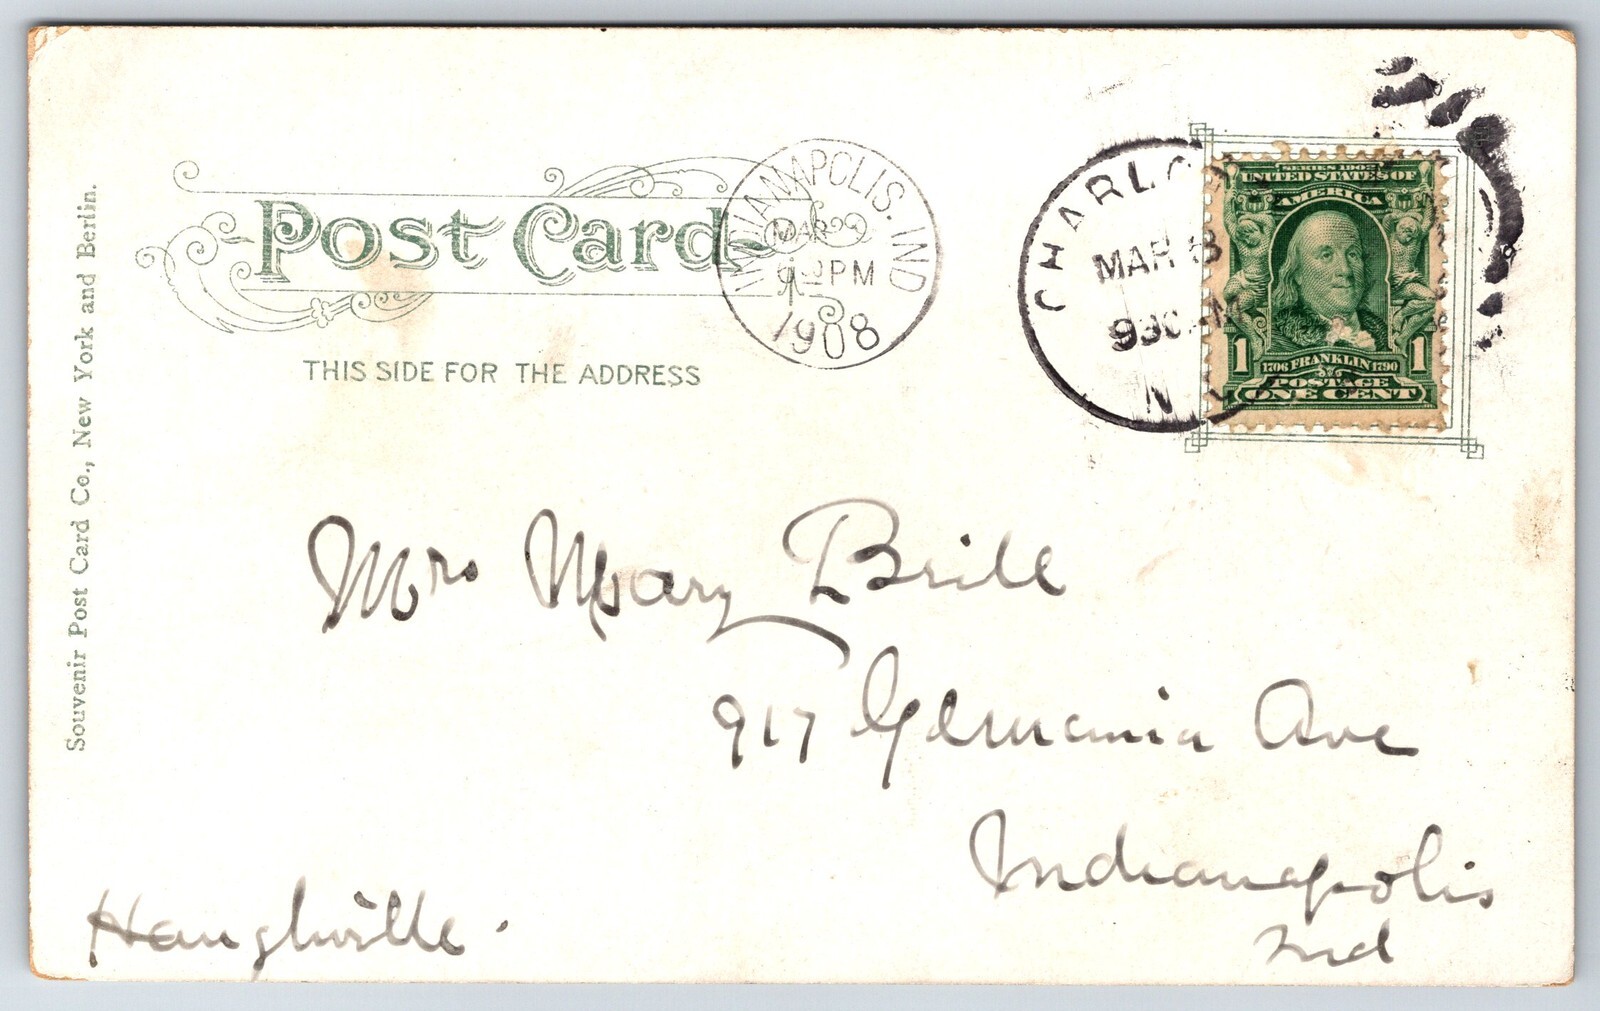 Post Card
THIS SIDE FOR THE ADDRESS
Souvenir Post Card Co., New York and Berlin.
INDIANAPOLIS. IND
MAR
PM
1908
CHARLO
MAR 8
930 AM
N
SERIES 1902
UNITED STATES OF
AMERICA
1 1
1706 FRANKLIN 1790
POSTAGE
ONE CENT
Mrs Mary Brill
917 Germania Ave
Indianapolis
Ind
Haughville.